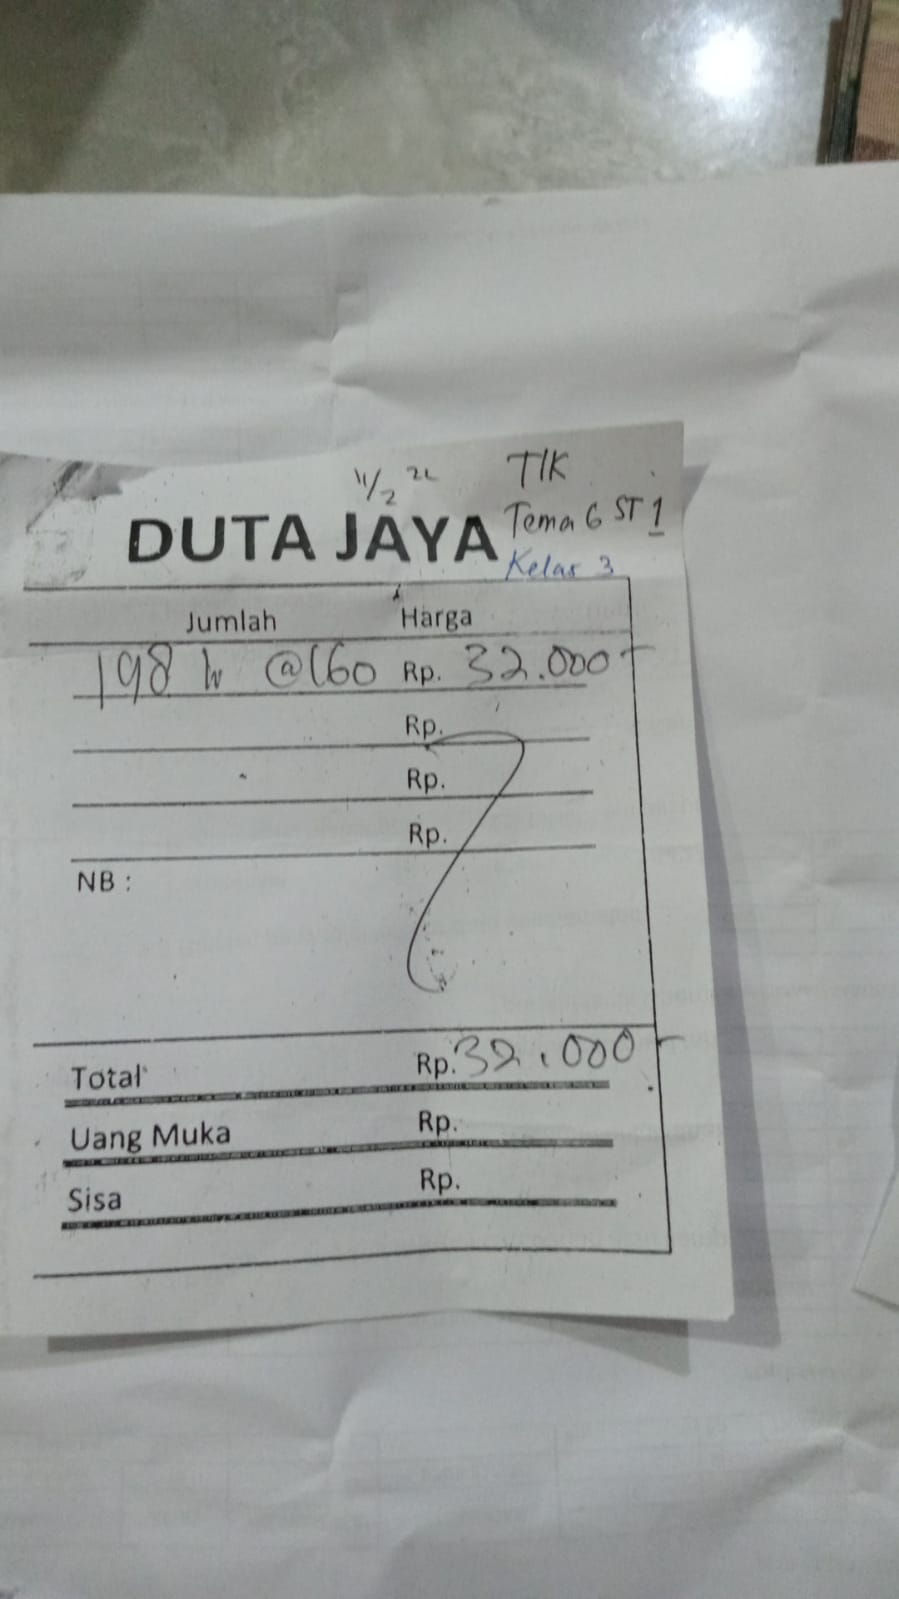 11/2 22
TIK
DUTA JAYA
Tema 6 ST 1
Kelas 3
Jumlah Harga
198 lv @160 Rp. 32.000-
Rp.
Rp.
Rp.
NB :
Total Rp. 32.000-
Uang Muka Rp.
Sisa Rp.